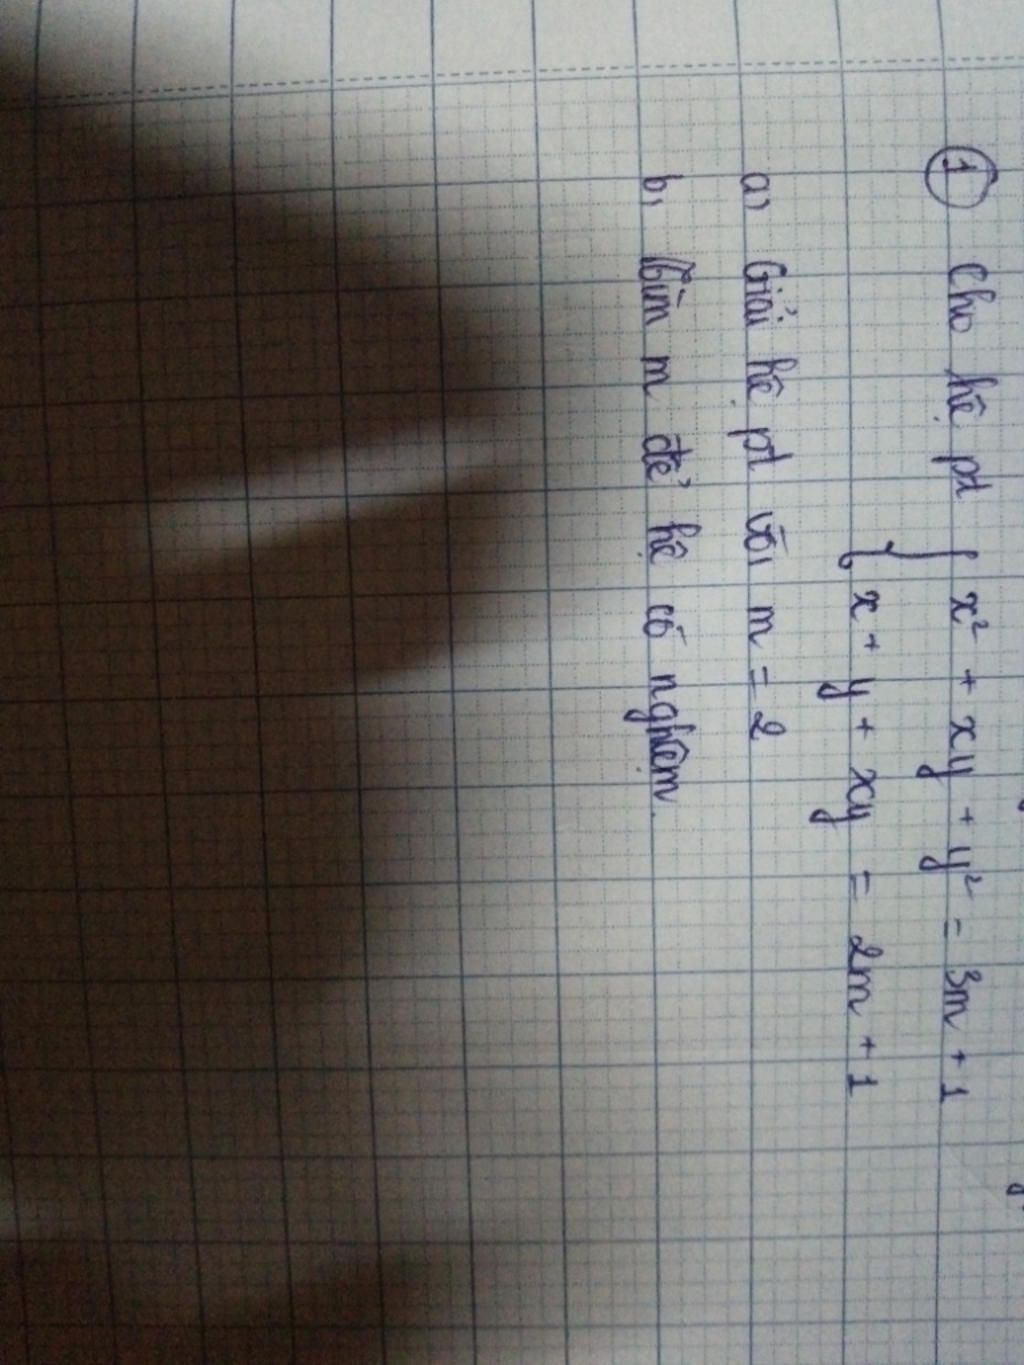 ① Cho hệ pt { x² + xy + y² = 3m + 1
x + y + xy = 2m + 1
a, Giải hệ pt với m = 2
b, Tìm m để hệ có nghiệm.